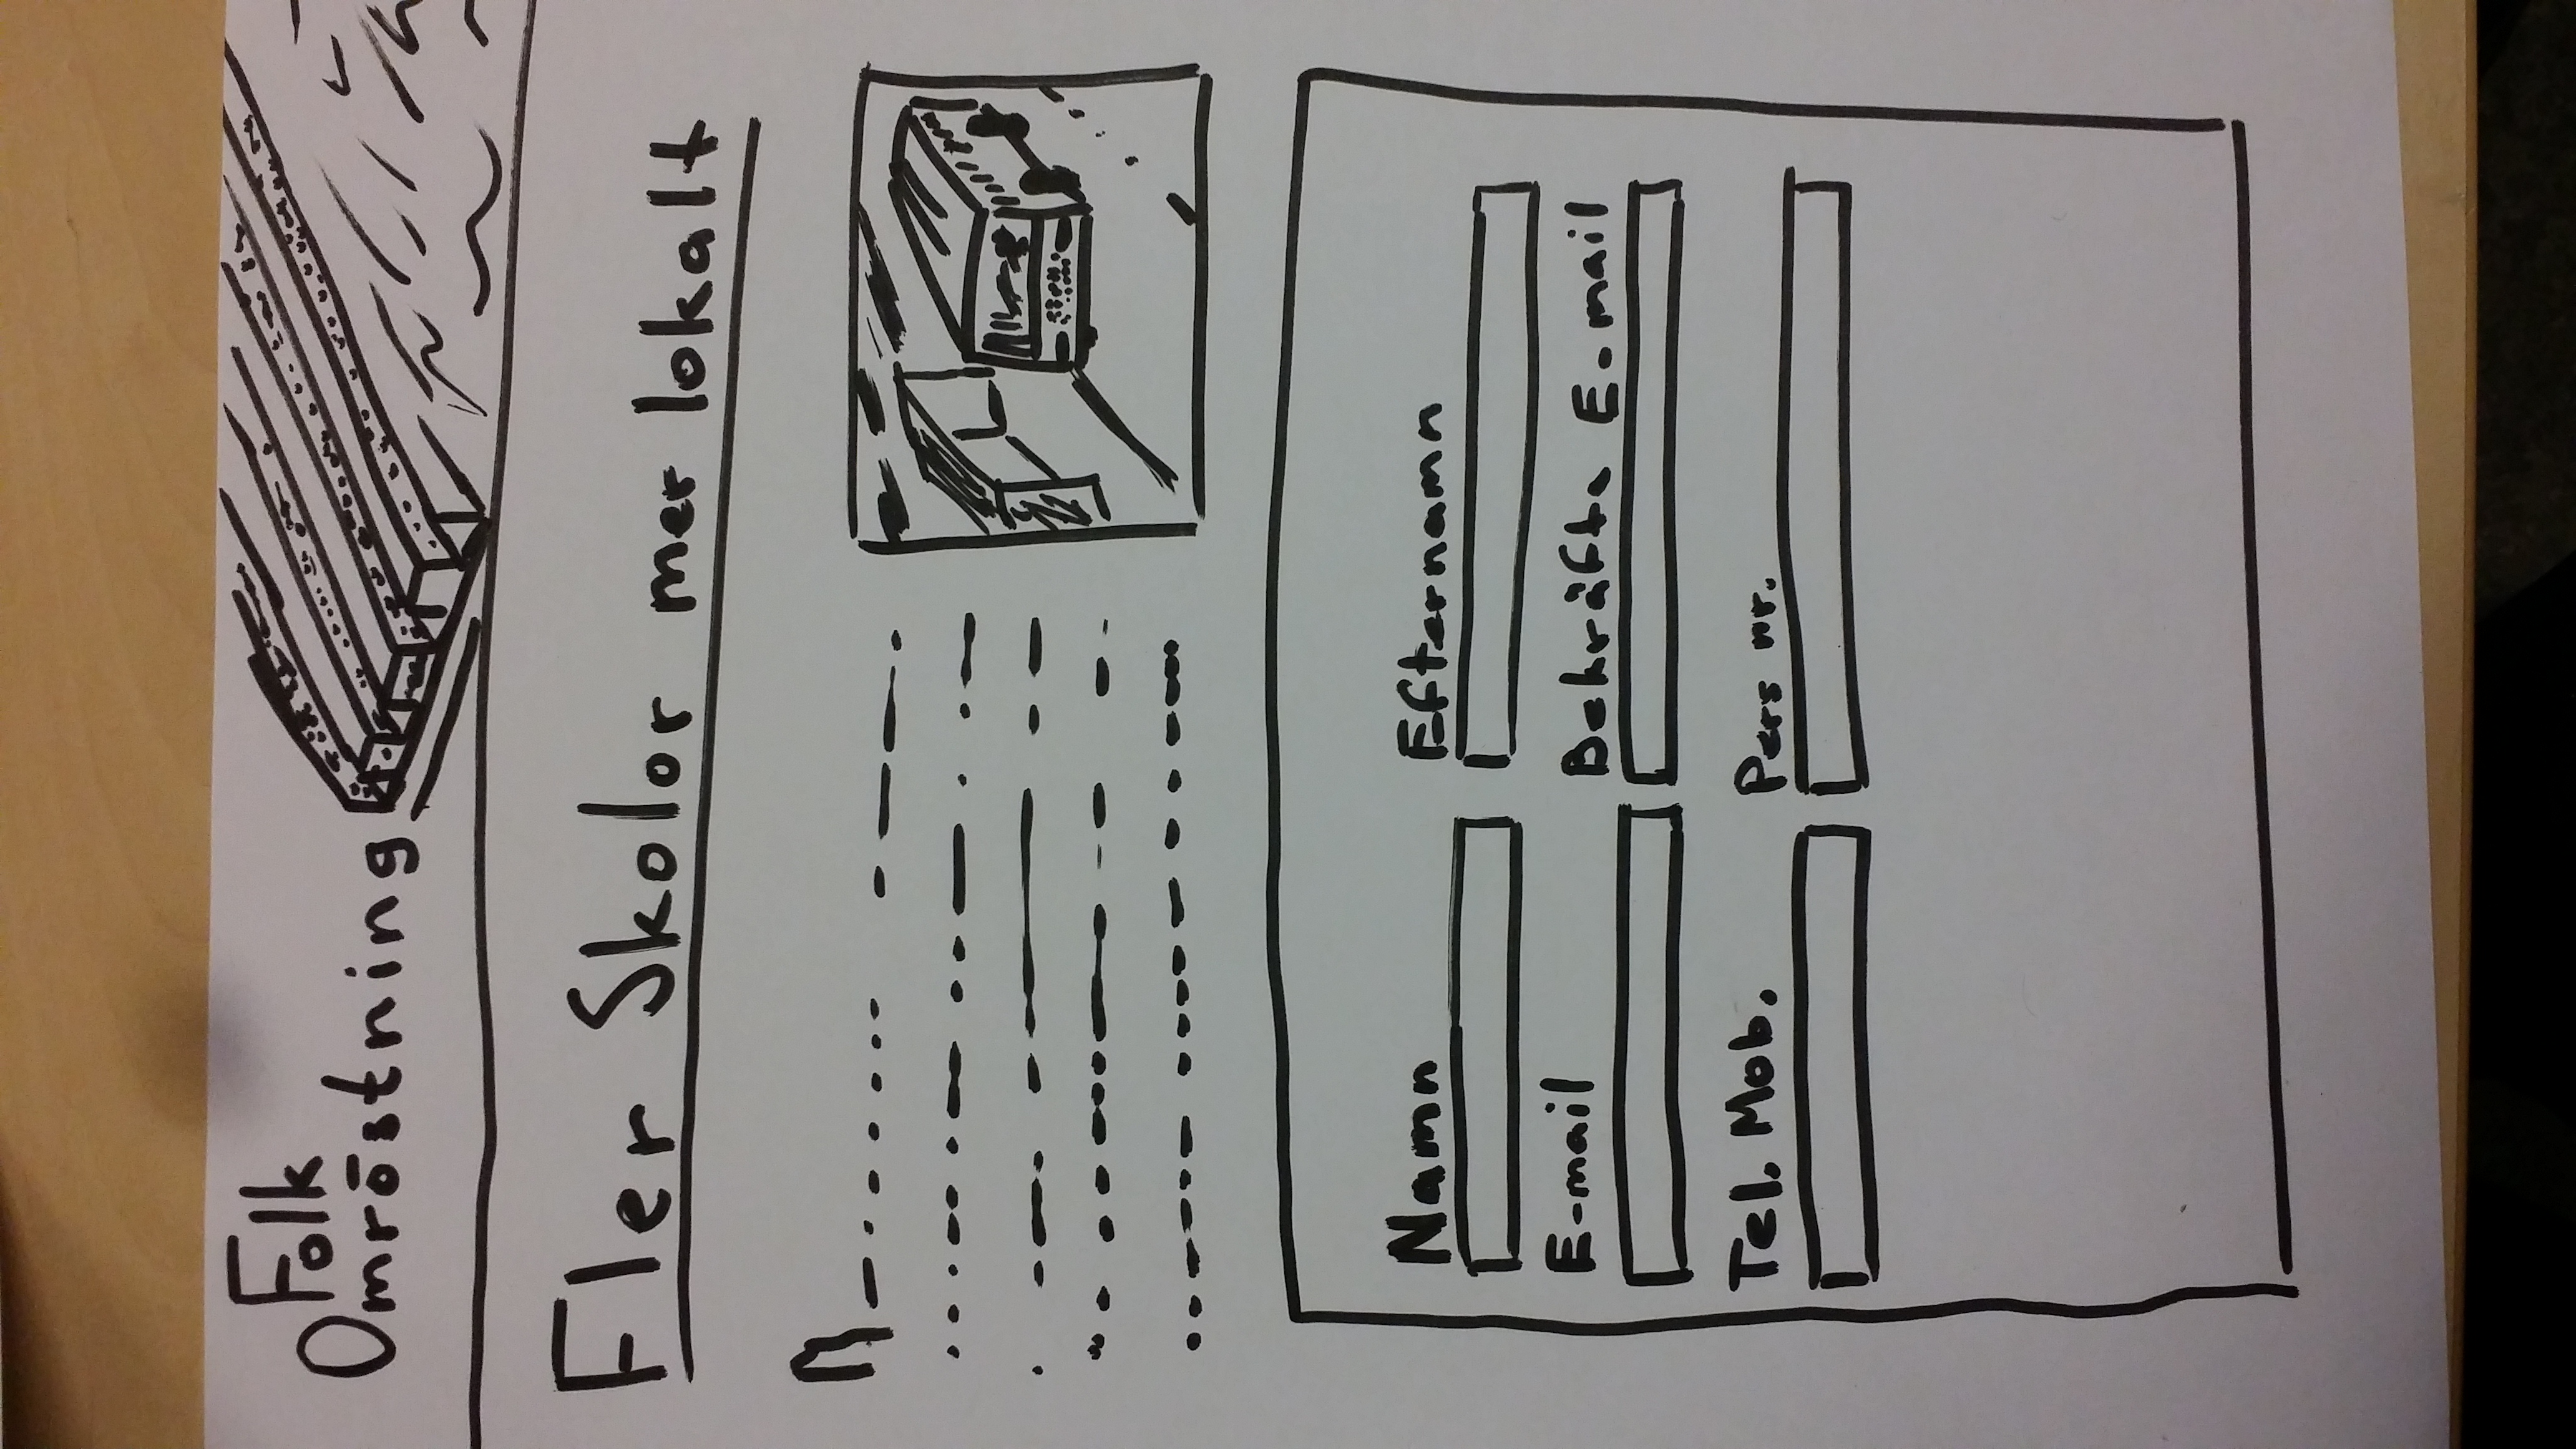 Folk
Omröstning
Fler Skolor mer lokalt
Namn
Efternamn
E-mail
Bekräfta E-mail
Tel. Mob.
Pers nr.